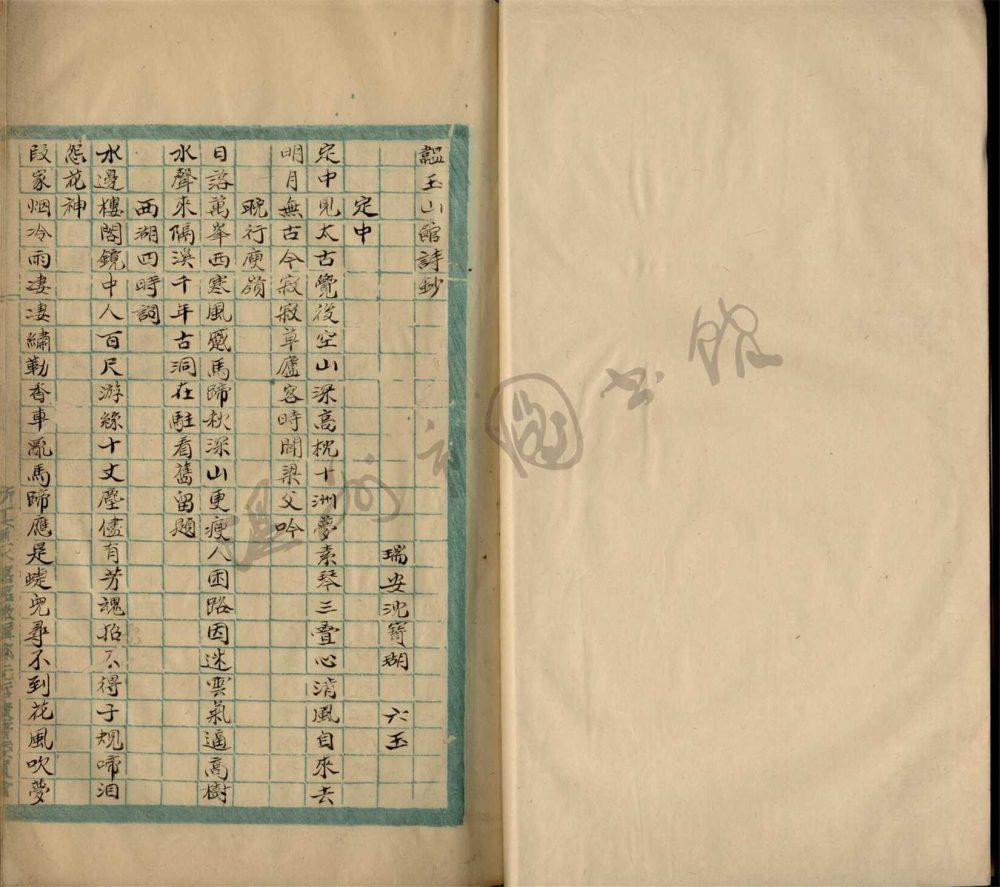 韞玉山館詩鈔
瑞安沈寶瑚 六玉
定中
定中見太古覺後空山深高枕十洲夢素琴三疊心清風自來去
明月無古今寂寂草廬客時聞梁父吟
晚行庾嶺
日落萬峯西寒風蹙馬蹄秋深山更瘦人困路因迷雲氣逼高樹
水聲來隔溪千年古洞在駐看舊留題
西湖四時詞
水邊樓閣鏡中人百尺游絲十丈塵儘有芳魂招不得子規啼泪
怨花神
段家烟冷雨凄凄繡勒香車亂馬蹄應是崚兒尋不到花風吹夢
温州市圖書館